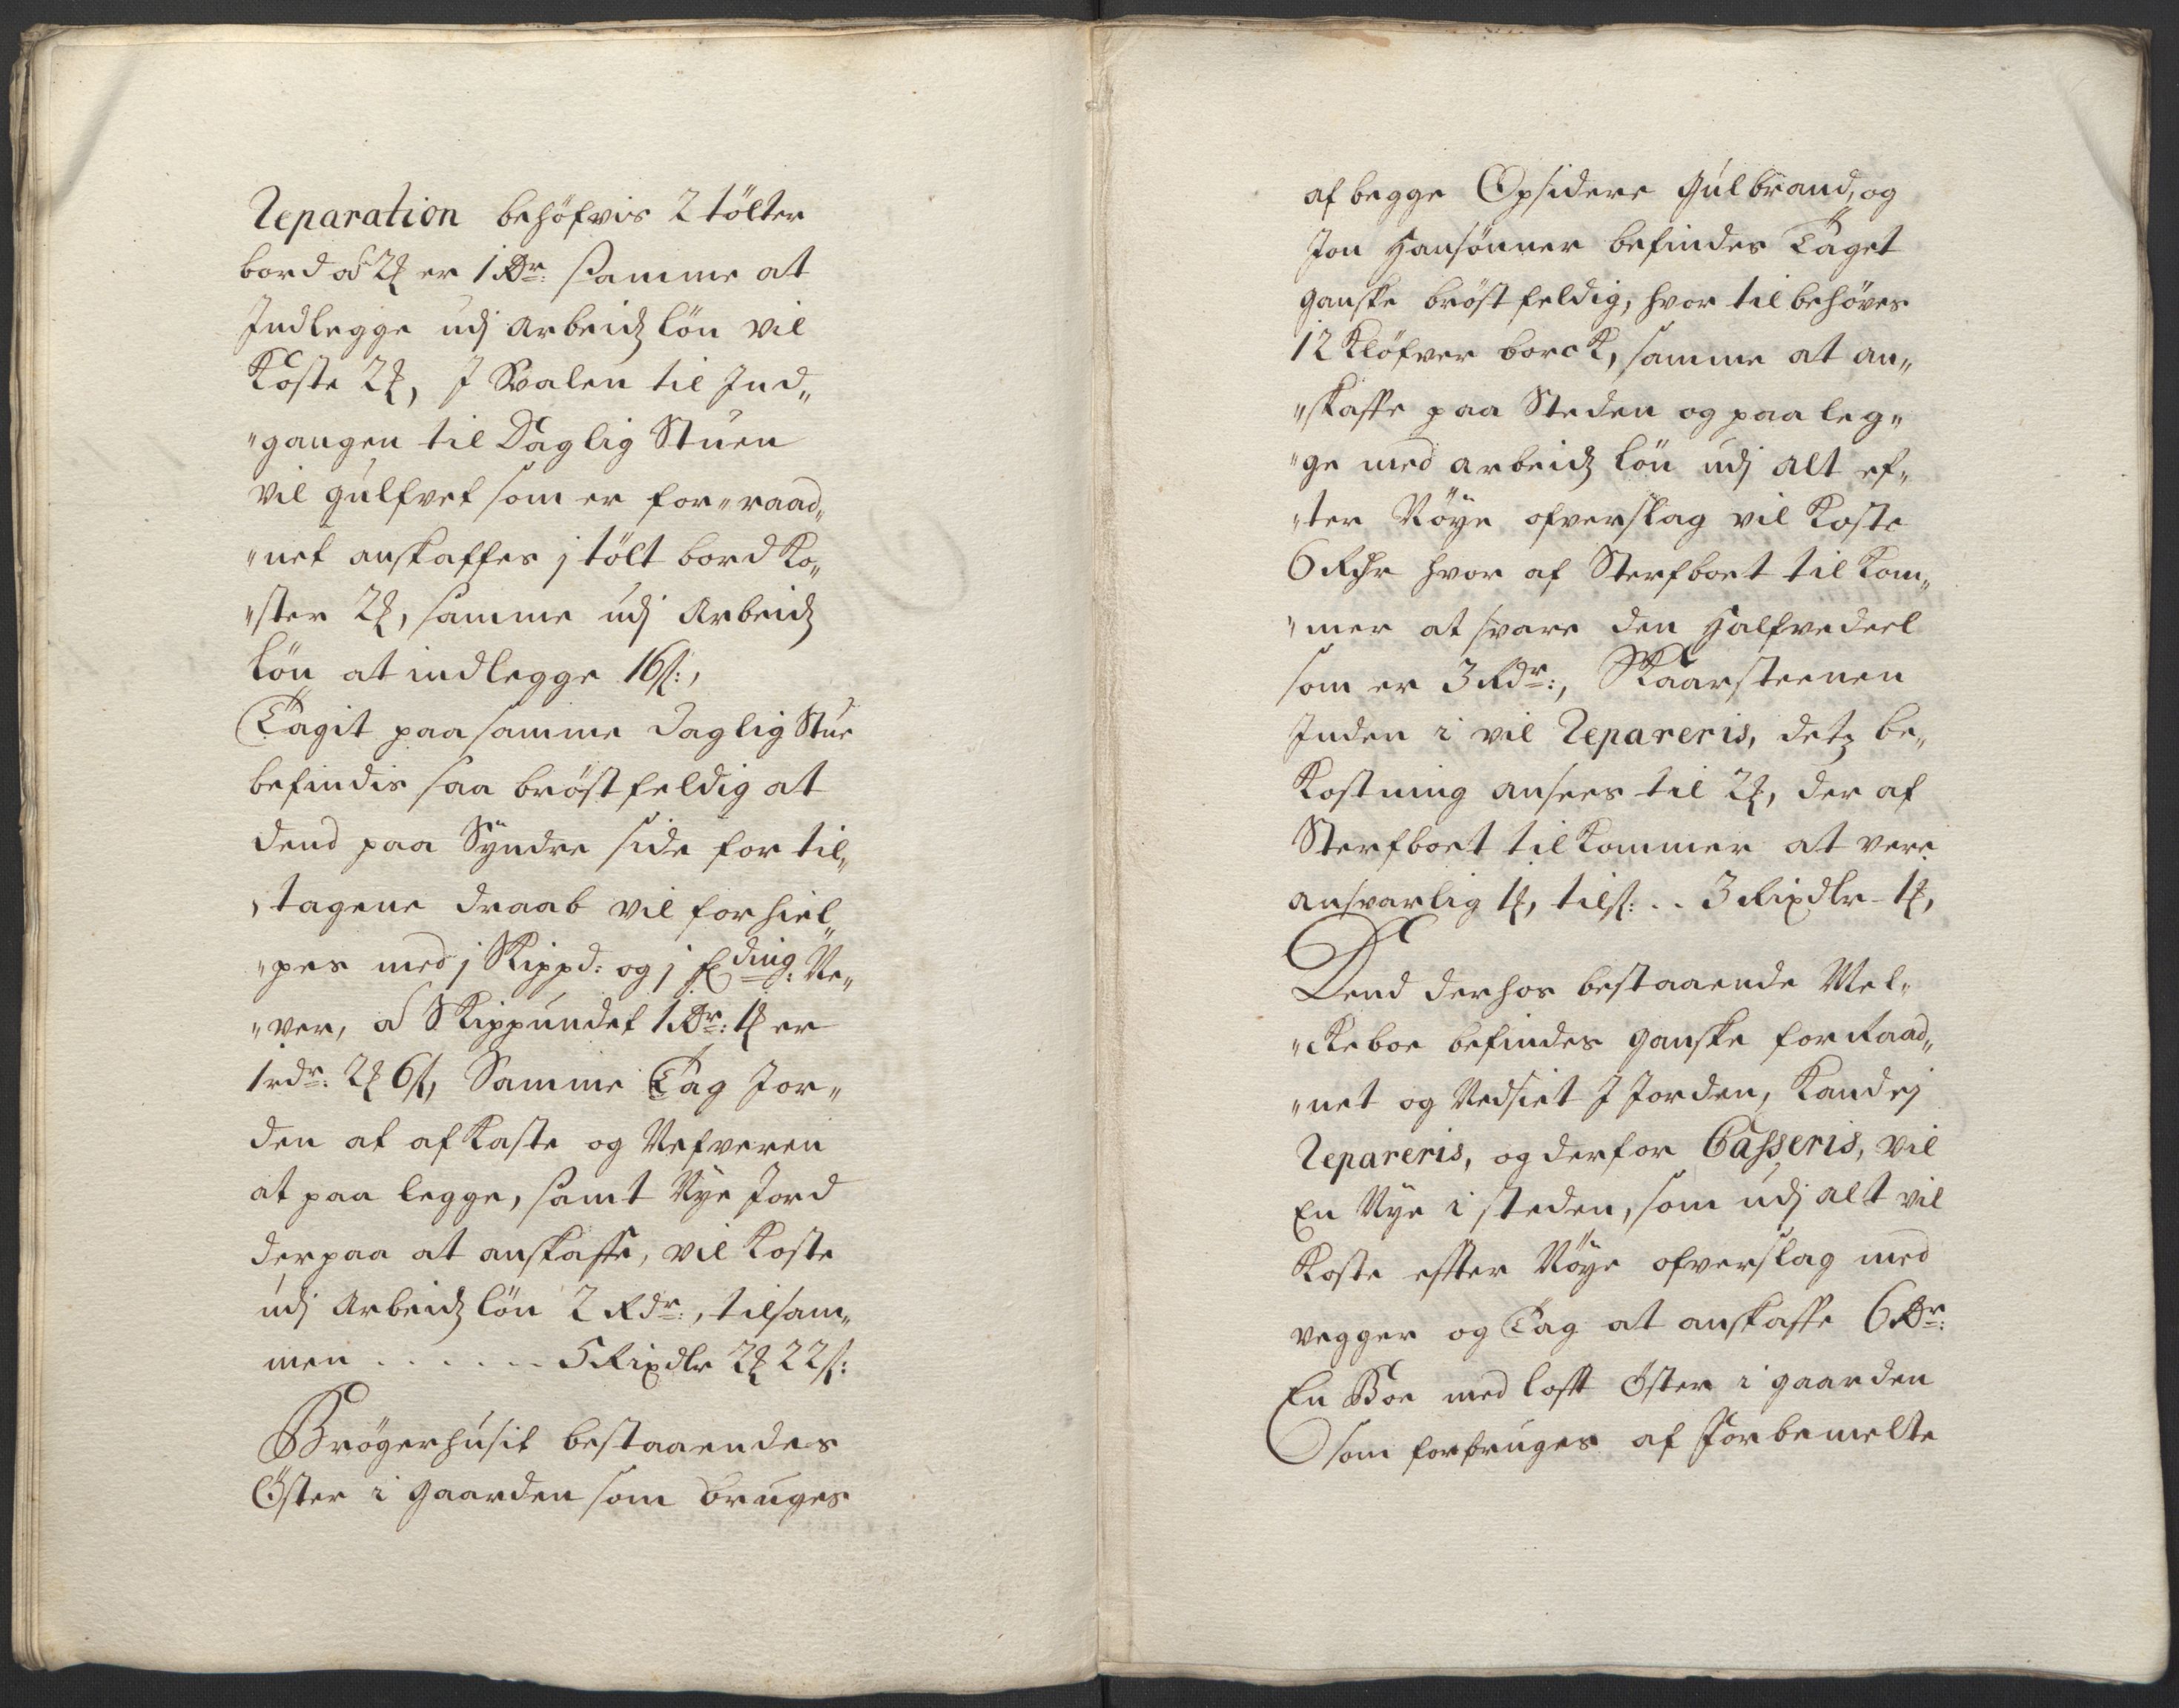 Reparation behöfvis 2 tölter
bord a 2 ꝑ er 1 Rdr: samme at
Indlegge udj arbeidz lön vil
Koste 2 ꝑ, I Svalen til Ind„
„gangen til Daglig Stuen
vil gulfvet som er for„raad„
„net anskaffes j tölt bord ko„
„ster 2 ꝑ, samme udj Arbeidz
lön at indlegge 16 s:,
Tagit paa samme Daglig Stue
befindis saa bröstfeldig at
dend paa Syndre side for til„
„tagene draab vil forhiel„
„pes med j Skippd: og j fi ding: Ne„
„ver, a Skippundet 1 Rdr: 1 ꝑ er
1 rdr: 2 ꝑ 6 s, Samme Tag Jor„
den at afkaste og Nefveren
at paa legge, samt Nye Jord
derpaa at anskaffe, vil koste
udj Arbeidz lön 2 Rdr:, tilsam„
men . . . . . . 5 Rixdlr 2 ꝑ 22 s:
Brögerhusit bestaaendes
Öster i Gaarden som bruges
af begge Opsidere Gulbrand, og
Jon Hansönner befindes Taget
ganske bröstfeldig, hvor til behöves
12 Klöfver borck, samme at an„
„skaffe paa Steden og paa leg„
„ge med arbeidz lön udj alt ef„
„ter Nöye ofverslag vil koste
6 Rdr hvor af Sterfboet til kom„
„mer at svare den Halfvedeel
som er 3 Rdr:, Skaarsteenen
Inden i vil Repareris, detz be„
Kostning ansees til 2 ꝑ, der af
Sterfboet tilkommer at vere
ansvarlig 1 ꝑ, tils: . . 3 Rixdlr 1 ꝑ,
Dend derhos bestaaende Mel„
„keboe befindes ganske forraad„
„net og Nedsiet I Jorden, kand ej
Repareris, og derfor Casseris, vil
En Nye i steden, som udj alt vil
Koste effter Nöye ofverslag med
vegger og Tag at anskaffe 6 Rdr:
En Boe med loft öster i gaarden
som forbruges af Forbemelte